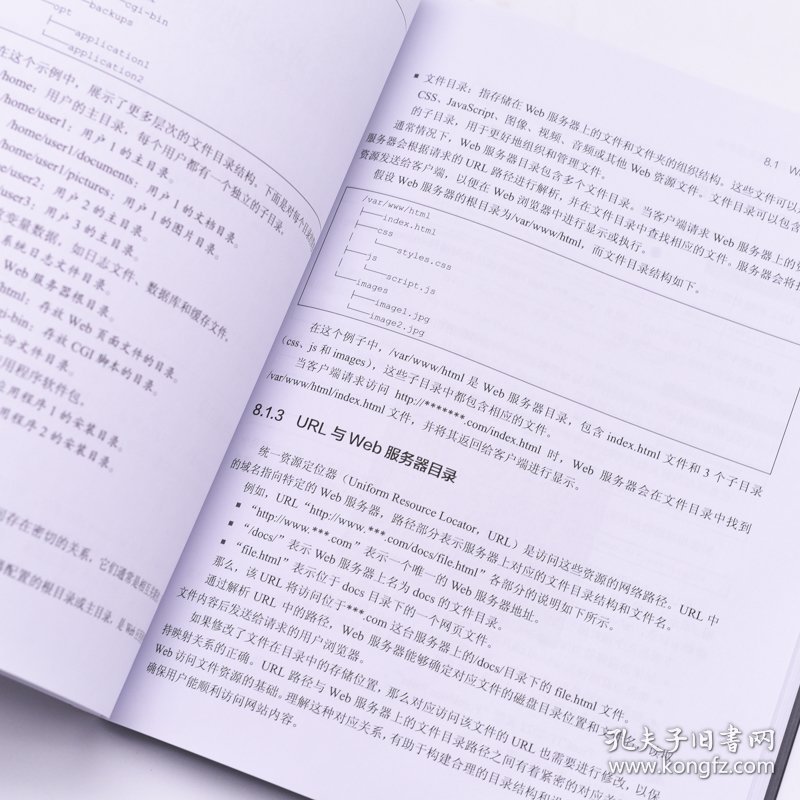 cgi-bin
backups
opt
application1
application2
在这个示例中，展示了更多层次的文件目录结构。下面是对每个目录的
/home：用户的主目录，每个用户都有一个独立的子目录。
/home/user1：用户 1 的主目录。
/home/user1/documents：用户 1 的文档目录。
/home/user1/pictures：用户 1 的图片目录。
/home/user2：用户 2 的主目录。
user3：用户 3 的主目录。
变量数据，如日志文件、数据库和缓存文件。
系统日志文件目录。
Web 服务器根目录。
html：存放 Web 页面文件的目录。
gi-bin：存放 CGI 脚本的目录。
份文件目录。
用程序软件包。
应用程序 1 的安装目录。
用程序 2 的安装目录。
间存在密切的关系，它们通常是相互
配置的根目录或主目录，是 Web
8.1 W
▪ 文件目录：指存储在 Web 服务器上的文件和文件夹的组织结构。这些文件可以
CSS、JavaScript、图像、视频、音频或其他 Web 资源文件。文件目录可以包含
的子目录，用于更好地组织和管理文件。
通常情况下，Web 服务器目录包含多个文件目录。当客户端请求 Web 服务器上的资
服务器会根据请求的 URL 路径进行解析，并在文件目录中查找相应的文件。服务器会将找
资源发送给客户端，以便在 Web 浏览器中进行显示或执行。
假设 Web 服务器的根目录为/var/www/html，而文件目录结构如下。
/var/www/html
index.html
css
styles.css
js
script.js
images
image1.jpg
image2.jpg
在这个例子中，/var/www/html 是 Web 服务器目录，包含 index.html 文件和 3 个子目录
（css、js 和 images），这些子目录中都包含相应的文件。
当客户端请求访问 http://*******.com/index.html 时，Web 服务器会在文件目录中找到
/var/www/html/index.html 文件，并将其返回给客户端进行显示。
8.1.3 URL 与 Web 服务器目录
统一资源定位器（Uniform Resource Locator，URL）是访问这些资源的网络路径。URL 中
的域名指向特定的 Web 服务器，路径部分表示服务器上对应的文件目录结构和文件名。
例如，URL“http://www.***.com/docs/file.html”各部分的说明如下所示。
▪ “http://www.***.com”表示一个唯一的 Web 服务器地址。
▪ “/docs/”表示 Web 服务器上名为 docs 的文件目录。
▪ “file.html”表示位于 docs 目录下的一个网页文件。
那么，该 URL 将访问位于***.com 这台服务器上的/docs/目录下的 file.html 文件。
通过解析 URL 中的路径，Web 服务器能够确定对应文件的磁盘目录位置和
文件内容后发送给请求的用户浏览器。
如果修改了文件在目录中的存储位置，那么对应访问该文件的 URL 也需要进行修改，以保
持映射关系的正确。URL 路径与 Web 服务器上的文件目录路径之间有着紧密的对应关
Web 访问文件资源的基础。理解这种对应关系，有助于构建合理的目录结构和
确保用户能顺利访问网站内容。
孔夫子旧书网
www.kongfz.com